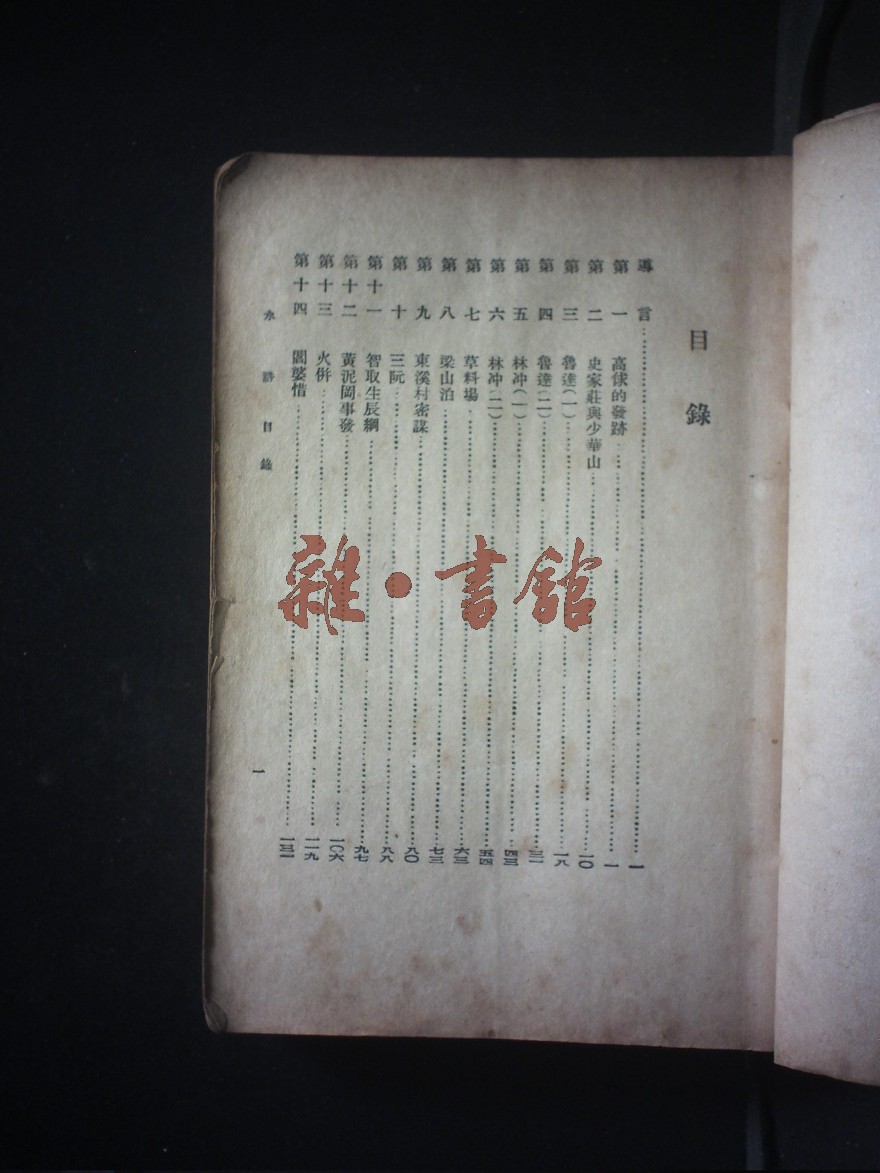 目錄
導言……一
第一 高俅的發跡……一
第二 史家莊與少華山……一〇
第三 魯達(一)……一八
第四 魯達(二)……三一
第五 林冲(一)……四三
第六 林冲(二)……五四
第七 草料場……六三
第八 梁山泊……七三
第九 東溪村密謀……八〇
第十 三阮……八八
第十一 智取生辰綱……九七
第十二 黃泥岡事發……一〇六
第十三 火併……一一九
第十四 閻婆惜……一三一
水滸 目錄
一
雜·書館